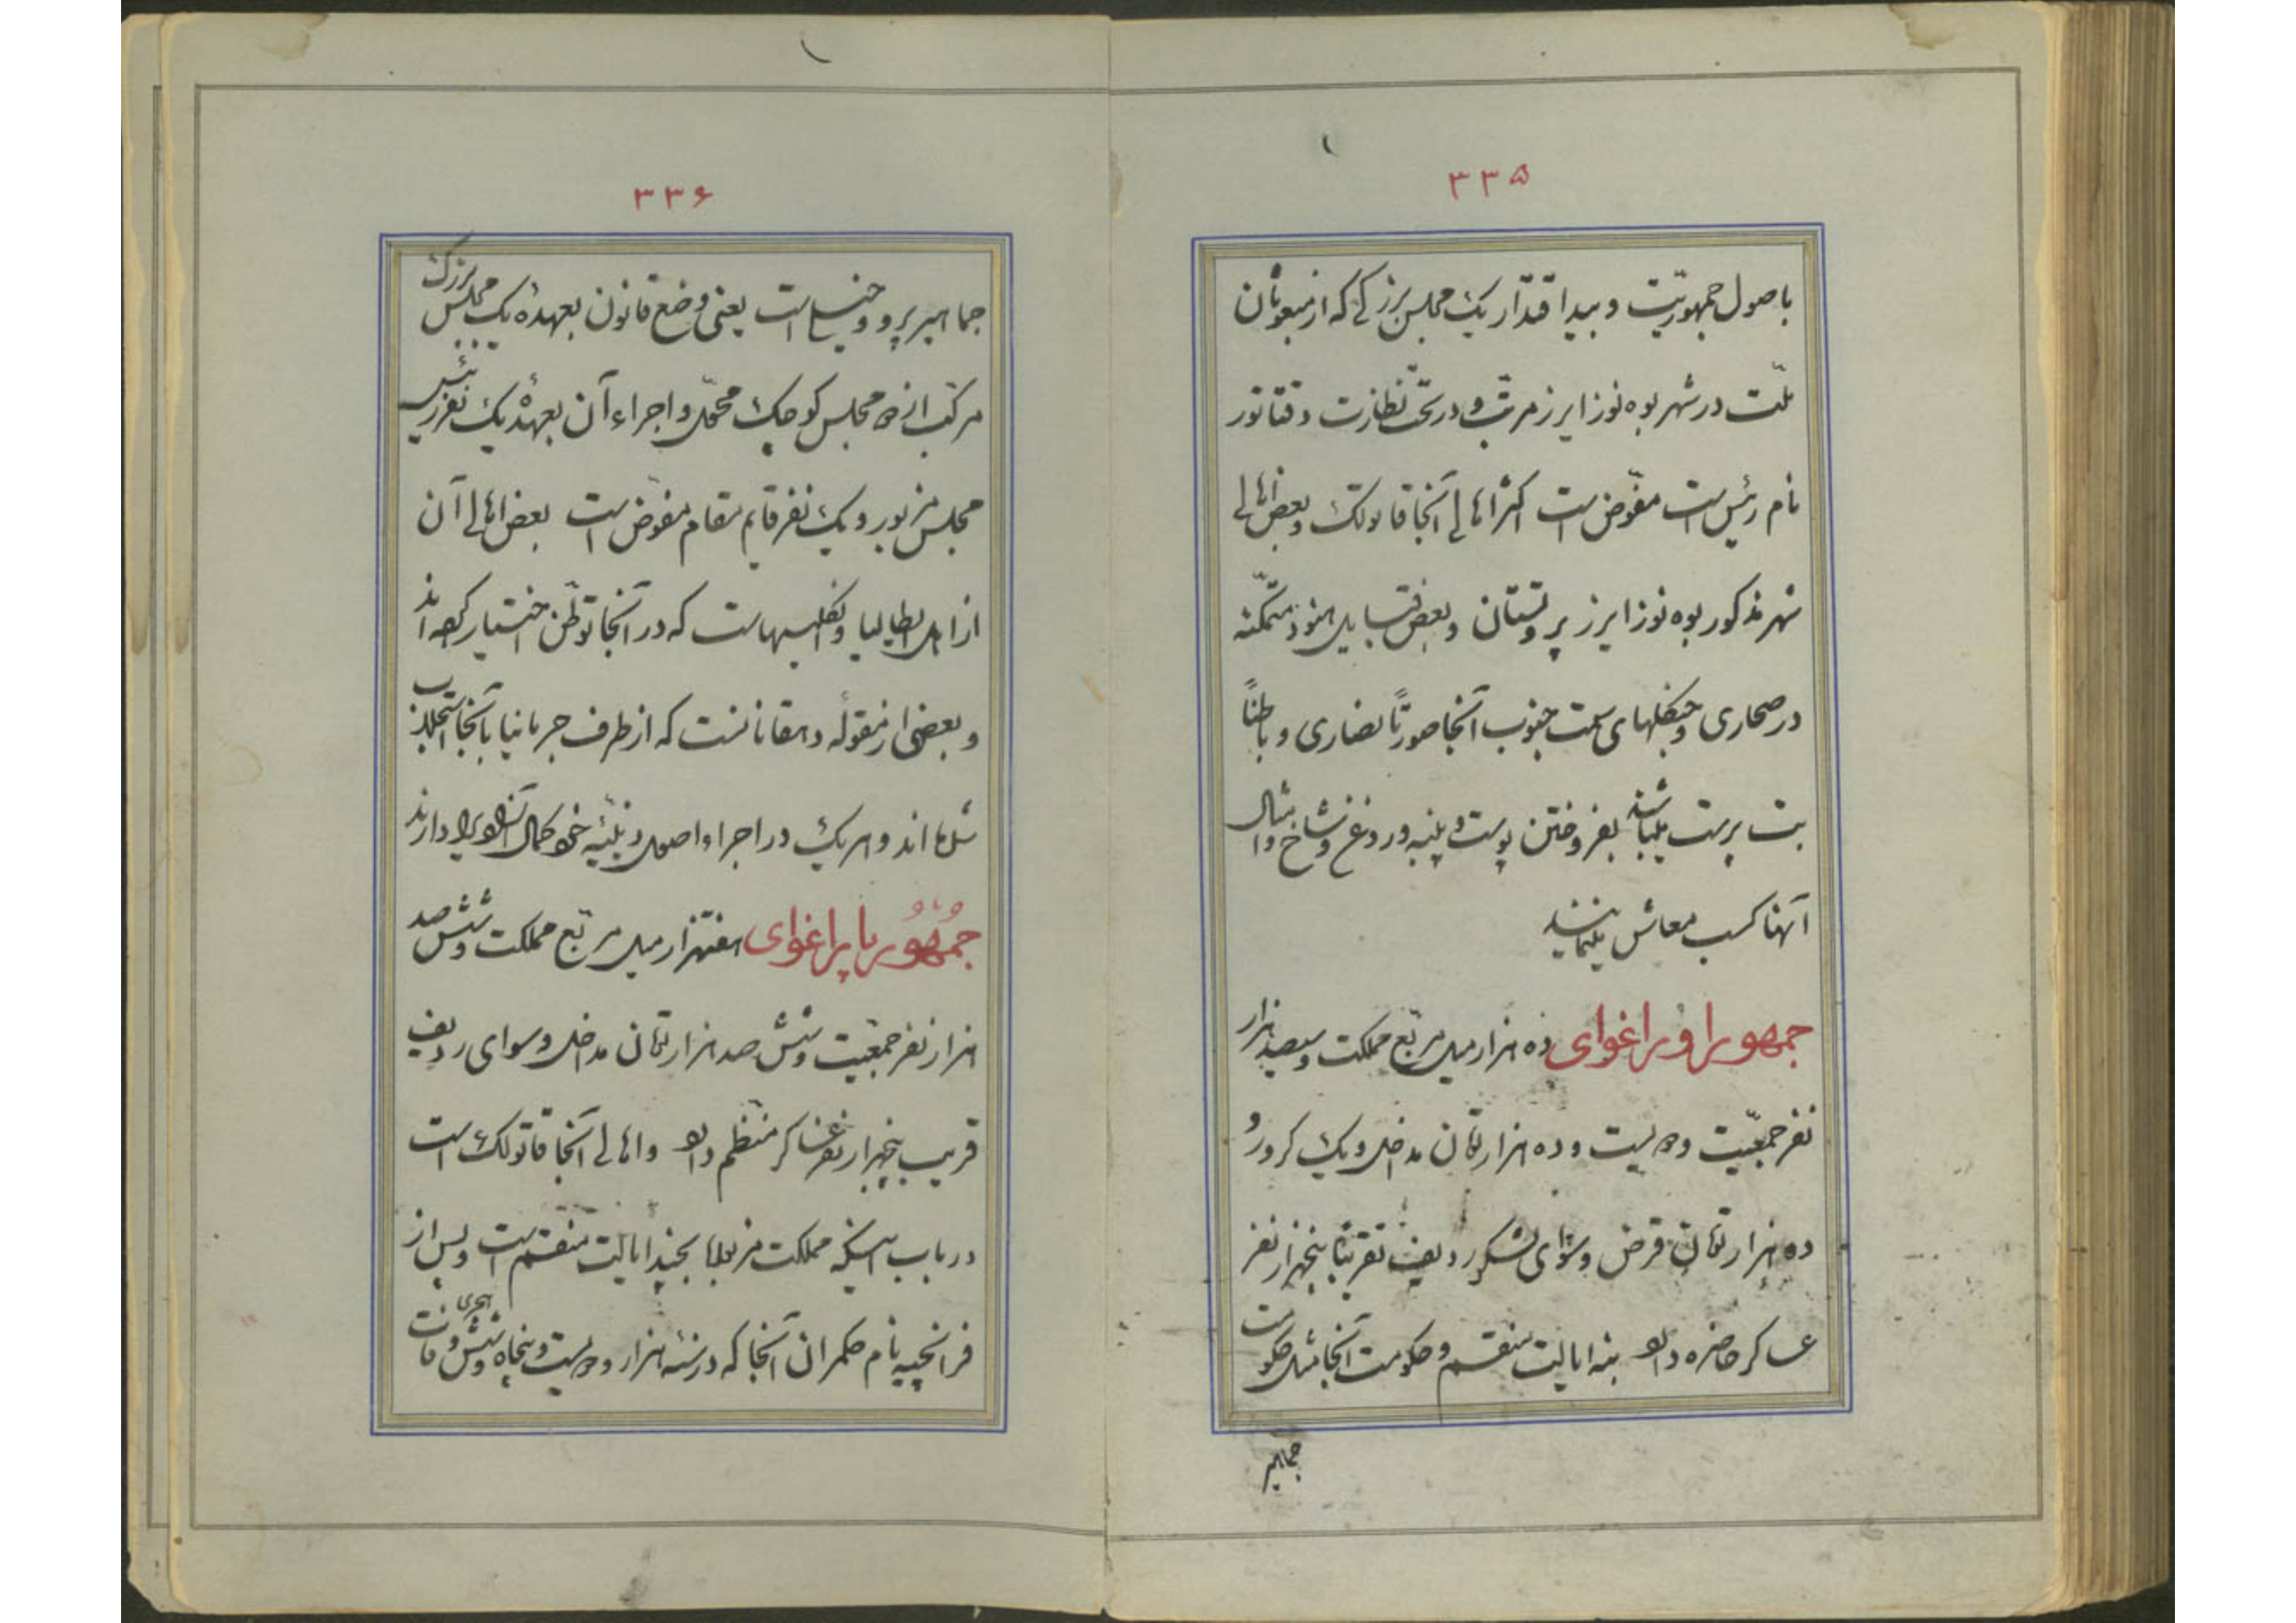 ۳۳۵
باصول جمهوریّت و بید اقتدار یک مجلس بزرگی که از مبعوثان
ملّت در شهر بوه نوز ایرز مرتّب و در تحت نظارت دقتاتور
نام رئیس است مفوّض است اکثر اهالی آنجا قاتولک و بعض اهالی
شهر مذکور بوه نوز ایرز پروتستان و بعض قبایل هنود متمکّنه
در صحاری و جنگلهای سمت جنوب آنجا صورتاً نصاری و باطناً
بت پرست میباشند بفروختن پوست و پنبه و روغن و شاخ و امثال
آنها کسب معاش مینمایند
جمهور اوراغوای ده هزار میل مربّع مملکت و سیصد هزار
نفر جمعیّت و دویست و ده هزار تومان مداخل و یک کرور و
ده هزار تومان قرض و سوای لشکر ردیف تقریباً پنجهزار نفر
عساکر حاضره دارد بنه ایالت منقسم و حکومت آنجا مثل حکومت
جماهیر
۳۳۶
جماهیر پرو و است یعنی وضع قانون بعهده یک مجلس بزرگ
مرکّب از دو مجلس کوچک محوّل و اجراء آن بعهدهٔ یک نفر رئیس
مجلس مزبور و یک نفر قایم مقام مفوّض است بعض اهالی آن
از اهل ایطالیا و انگلیسهاست که در آنجا توطّن اختیار کرده اند
و بعضی از مقوله دهقانانست که از طرف جرمانیا بآنجا جلب
شده اند و هر یک در اجراء اصول دینیّه خود کمال آزادی را دارند
جُمهُور پاراغوای هفتهزار میل مربّع مملکت و شش صد
هزار نفر جمعیّت و شش صد هزار تومان مداخل و سوای ردیف
قریب پنجهزار نفر عساکر منتظم دارد و اهالی آنجا قاتولک است
در باب اینکه مملکت مزبور بچند ایالت منقسم است و پس از
فرانچیه نام حکمران آنجا که در سنه هزار و دویست و پنجاه و شش هجری وفات